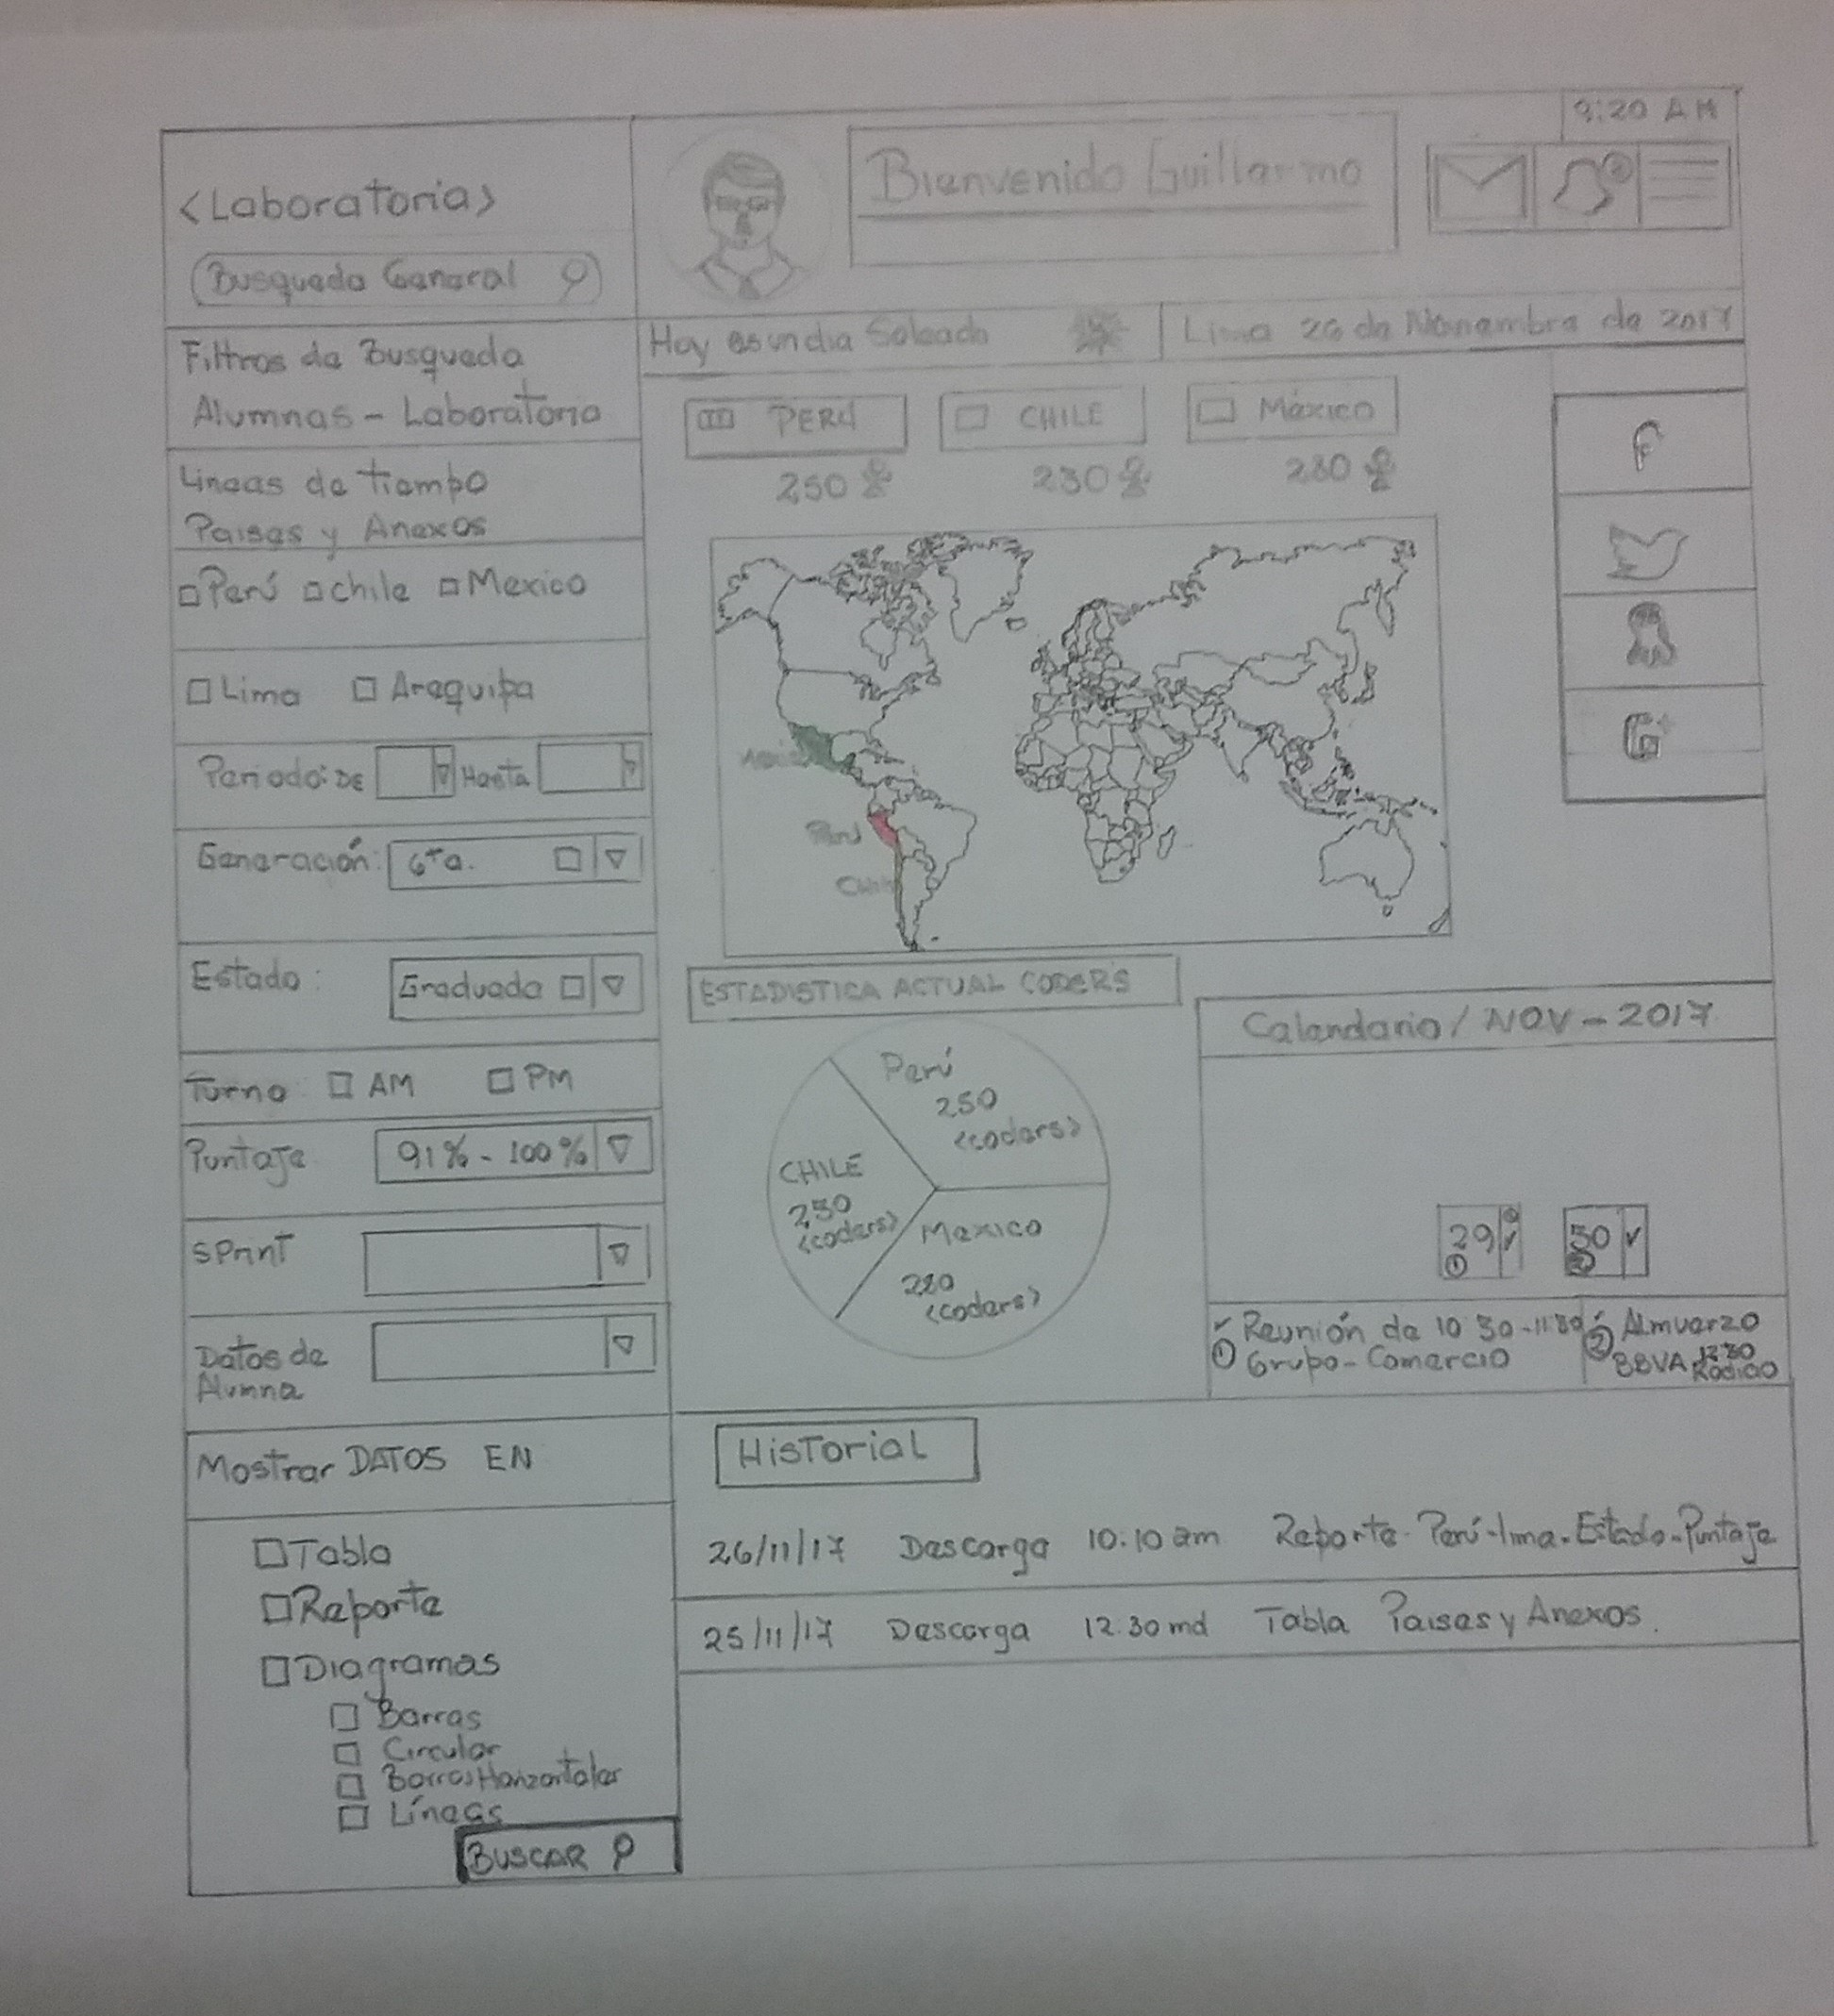 9:20 AM
<Laboratoria>
Bienvenido Guillermo
Busqueda General
Hoy es un dia Soleado
Lima 26 de Novembre de 2017
Filtros de Busqueda
Alumnas - Laboratoria
PERÚ
CHILE
México
250
230
Lineas de tiempo
Paises y Anexos
Perú
chile
Mexico
Lima
Arequipa
Periodo: DE
Hasta
Generación: 6Ta.
Estado: Graduada
Turno
AM
PM
Puntaje
91% - 100%
Sprint
Datos de
Alumna
Mostrar DATOS EN
Tabla
Reporte
Diagramas
Barras
Circular
Barras Horizontales
Líneas
BUSCAR
f
G+
Perú
ESTADISTICA ACTUAL CODERS
Perú
250
<coders>
CHILE
230
<coders>
Mexico
<coders>
Calendario / NOV - 2017
29
1
30
2
Reunión de 10 30 - 11:30
1 Grupo - Comercio
2 Almuerzo
BBVA
HisTorial
26/11/17 Descarga 10:10 am Reporte - Perú - lima - Estado - Puntaje
25/11/17 Descarga 12:30 md Tabla Paises y Anexos.